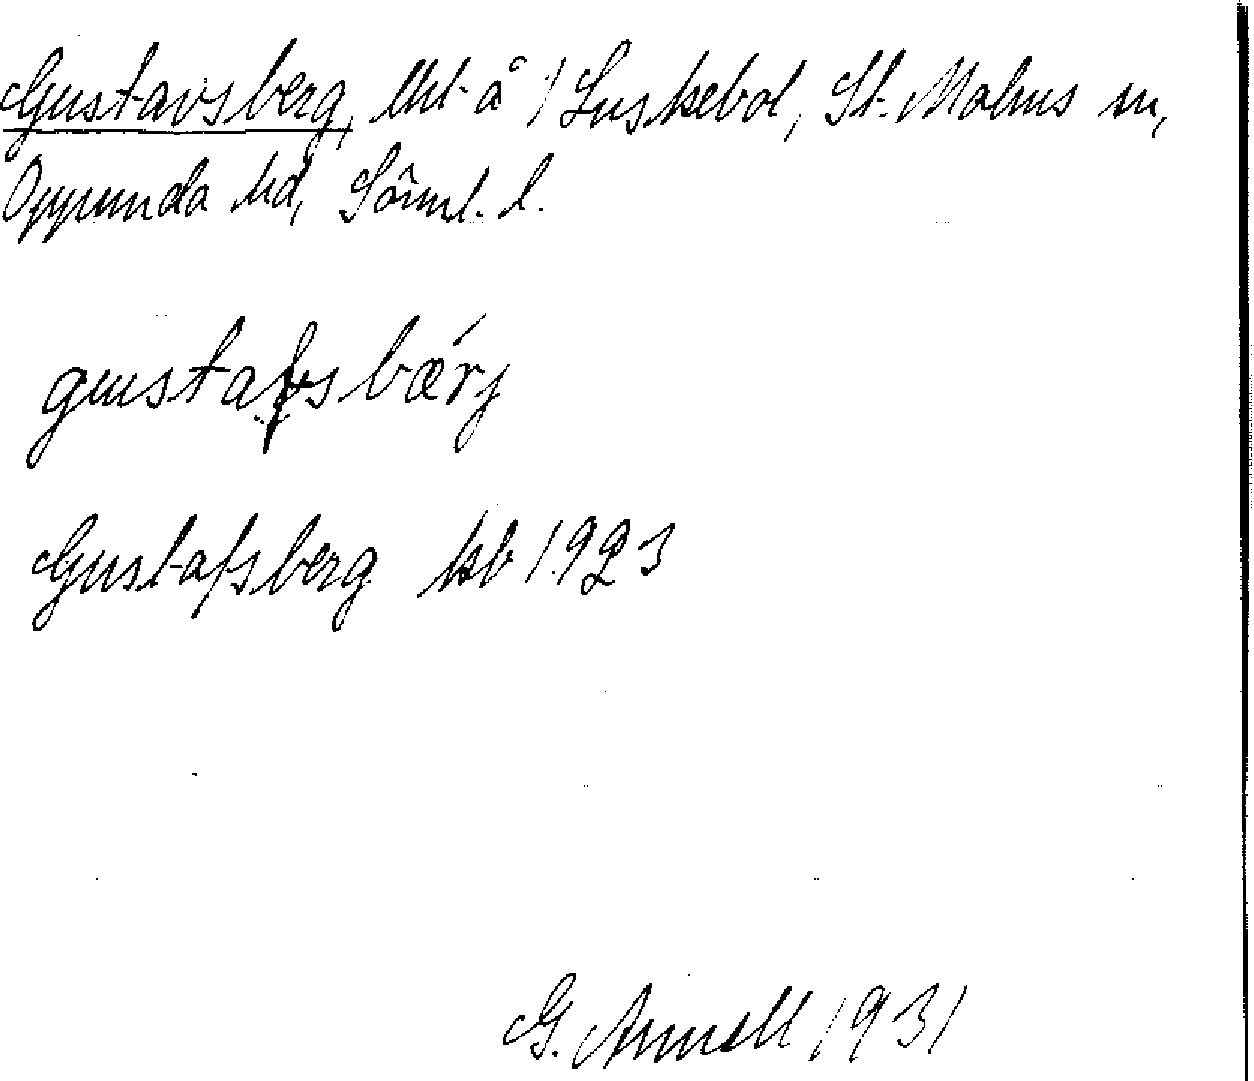 Gustavsberg, lht å / Luskebol, St. Malms sn,
Oppunda hd, Sörml. l.
gustafsbærj
Gustafsberg kb 1923
G. Arnell 1931